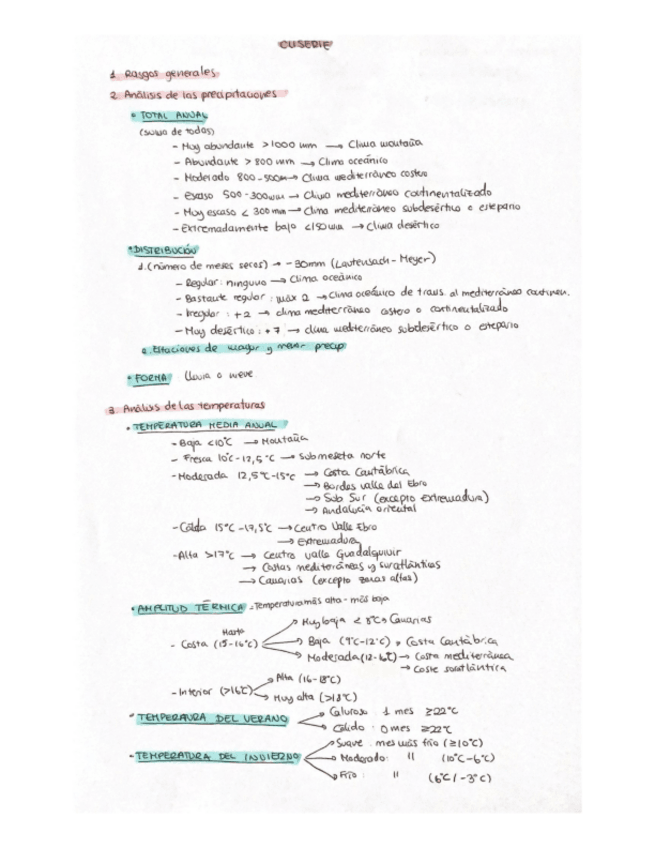 CUSERIE
1. Rasgos generales
2. Análisis de las precipitaciones
• TOTAL ANUAL
(suma de todas)
- Muy abundante >1000 mm → Clima montaña
- Abundante > 800 mm → Clima oceánico
- Moderado 800-500mm → Clima mediterráneo costero
- Escaso 500-300mm → Clima mediterráneo continentalizado
- Muy escaso < 300 mm → Clima mediterráneo subdesértico o estepario
- Extremadamente bajo <150 mm → Clima desértico
• DISTRIBUCIÓN
1. (número de meses secos) → -30mm (Lautensach-Meyer)
- Regular: ninguno → Clima oceánico
- Bastante regular: máx 2 → Clima oceánico de trans. al mediterráneo continen.
- Irregular: +2 → clima mediterráneo costero o continentalizado
- Muy desértico: +7 → clima mediterráneo subdesértico o estepario
Estaciones de mayor y menor precip
• FORMA: lluvia o nieve
3. Análisis de las temperaturas
• TEMPERATURA MEDIA ANUAL
- Baja <10°C → Montaña
- Fresca 10°C-12,5°C → Submeseta norte
- Moderada 12,5°C-15°C → Costa Cantábrica
→ Bordes valle del Ebro
→ Sub Sur (excepto extremadura)
→ Andalucía oriental
- Cálida 15°C-17,5°C → Centro Valle Ebro
→ extremadura
- Alta >17°C → Centro valle Guadalquivir
→ Costas mediterráneas y suratlánticas
→ Canarias (excepto zonas altas)
• AMPLITUD TÉRMICA = Temperatura más alta - más baja
Hasta
- Costa (15-16°C) → Muy baja < 8°C → Canarias
→ Baja (9°C-12°C) → Costa Cantábrica
→ Moderada (12-16°C) → Costa mediterránea
→ Costa suratlántica
- Interior (>16°C) → Alta (16-18°C)
→ Muy alta (>18°C)
• TEMPERAURA DEL VERANO → Caluroso: 1 mes ≥22°C
→ Cálido: 0 mes ≥22°C
- TEMPERATURA DEL INVIERNO → Suave: mes más frío (≥10°C)
→ Moderado: " (10°C-6°C)
→ Frío: " (6°C/-3°C)